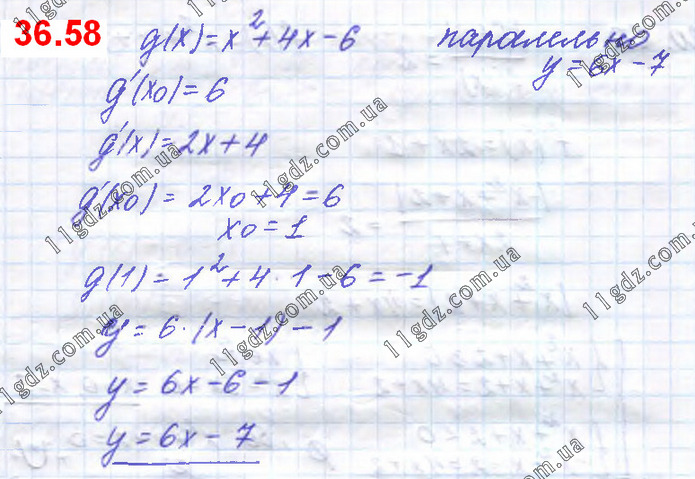 36.58 g(x) = x² + 4x - 6 паралельно
y = 6x - 7
g'(x0) = 6
g'(x) = 2x + 4
g'(x0) = 2x0 + 4 = 6
x0 = 1
g(1) = 1² + 4 · 1 - 6 = -1
y = 6 · (x - 1) - 1
y = 6x - 6 - 1
y = 6x - 7
11gdz.com.ua
11gdz.com.ua
11gdz.com.ua
11gdz.com.ua
11gdz.com.ua
11gdz.com.ua
11gdz.com.ua
11gdz.com.ua